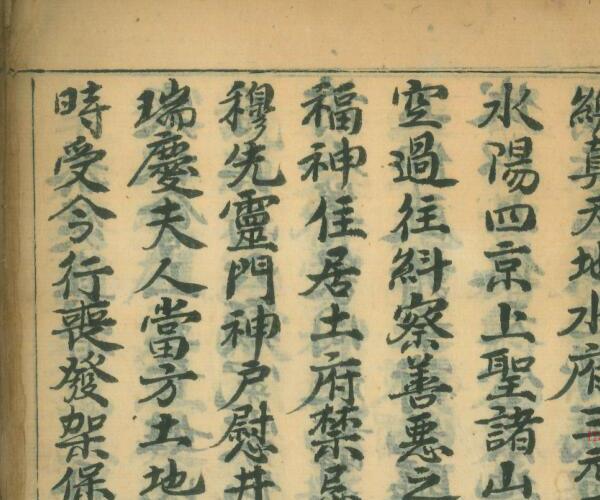 真天地水府三元
水陽四京上聖諸山
空過徃糾察善惡之
福神住居土府禁忌
穆先靈門神户尉井
瑞慶夫人當方土地
時受今行喪發架保